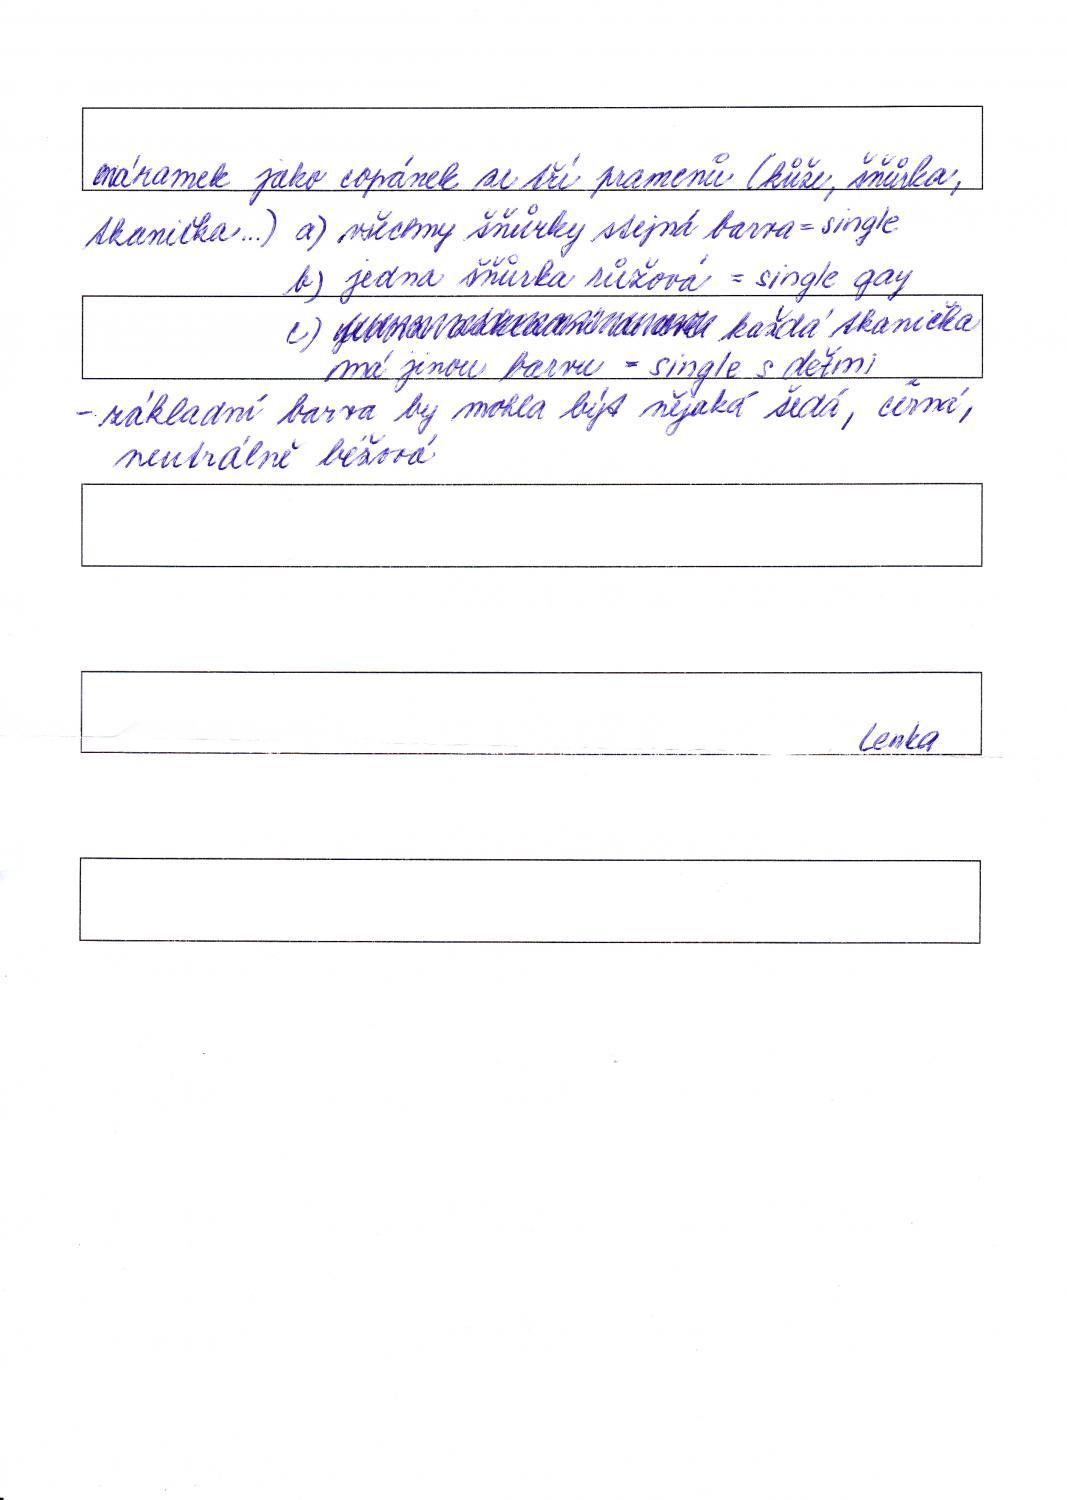 náramek jako copánek ze tří pramenů (kůže, šňůrka,
tkanička...) a) všechny šňůrky stejná barva = single
b) jedna šňůrka růžová = single gay
c) každá tkanička
má jinou barvu = single s dětmi
- základní barva by mohla být nějaká šedá, černá,
neutrálně béžová
Lenka